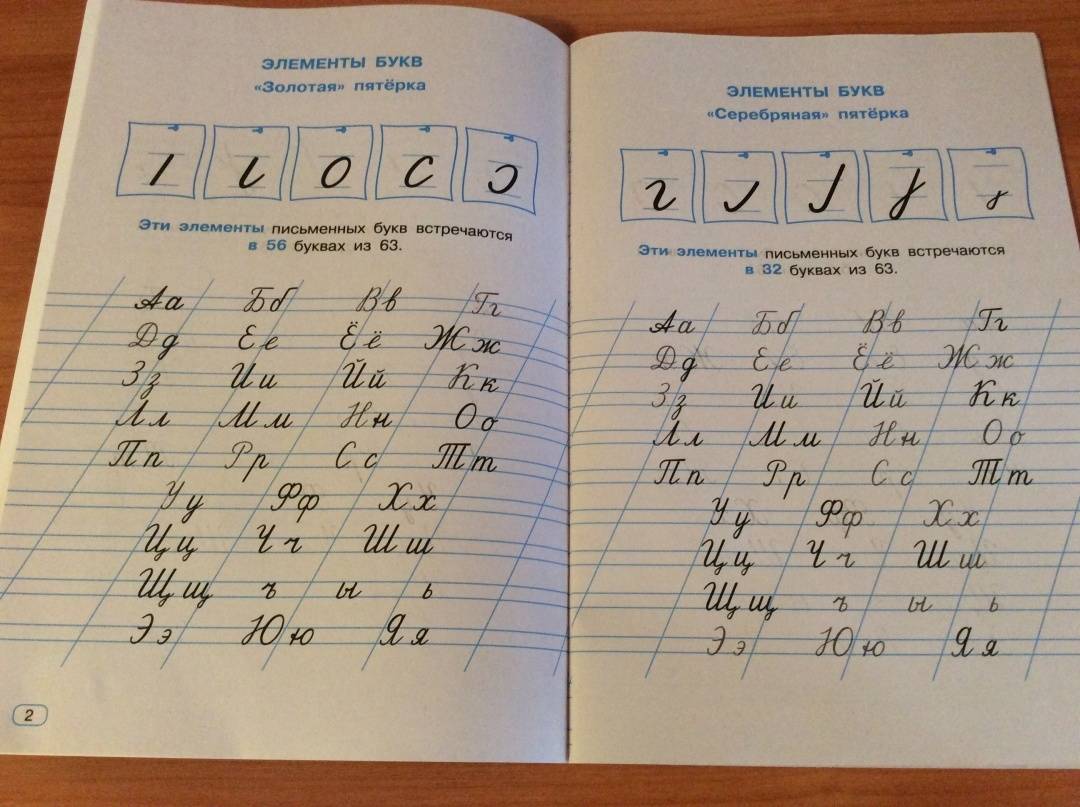 ЭЛЕМЕНТЫ БУКВ
«Золотая» пятёрка
Эти элементы письменных букв встречаются
в 56 буквах из 63.
Аа Бб Вв Гг
Дд Ее Ёё Жж
Зз Ии Йй Кк
Лл Мм Нн Оо
Пп Рр Сс Тт
Уу Фф Хх
Цц Чч Шш
Щщ ъ ы ь
Ээ Юю Яя
2
ЭЛЕМЕНТЫ БУКВ
«Серебряная» пятёрка
Эти элементы письменных букв встречаются
в 32 буквах из 63.
Аа Бб Вв Гг
Дд Ее Ёё Жж
Зз Ии Йй Кк
Лл Мм Нн Оо
Пп Рр Сс Тт
Уу Фф Хх
Цц Чч Шш
Щщ ъ ы ь
Ээ Юю Яя